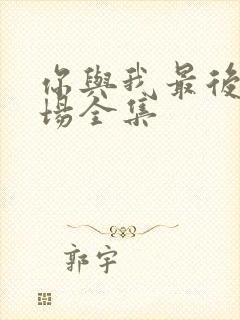 你與我最後
場全集
郭宇